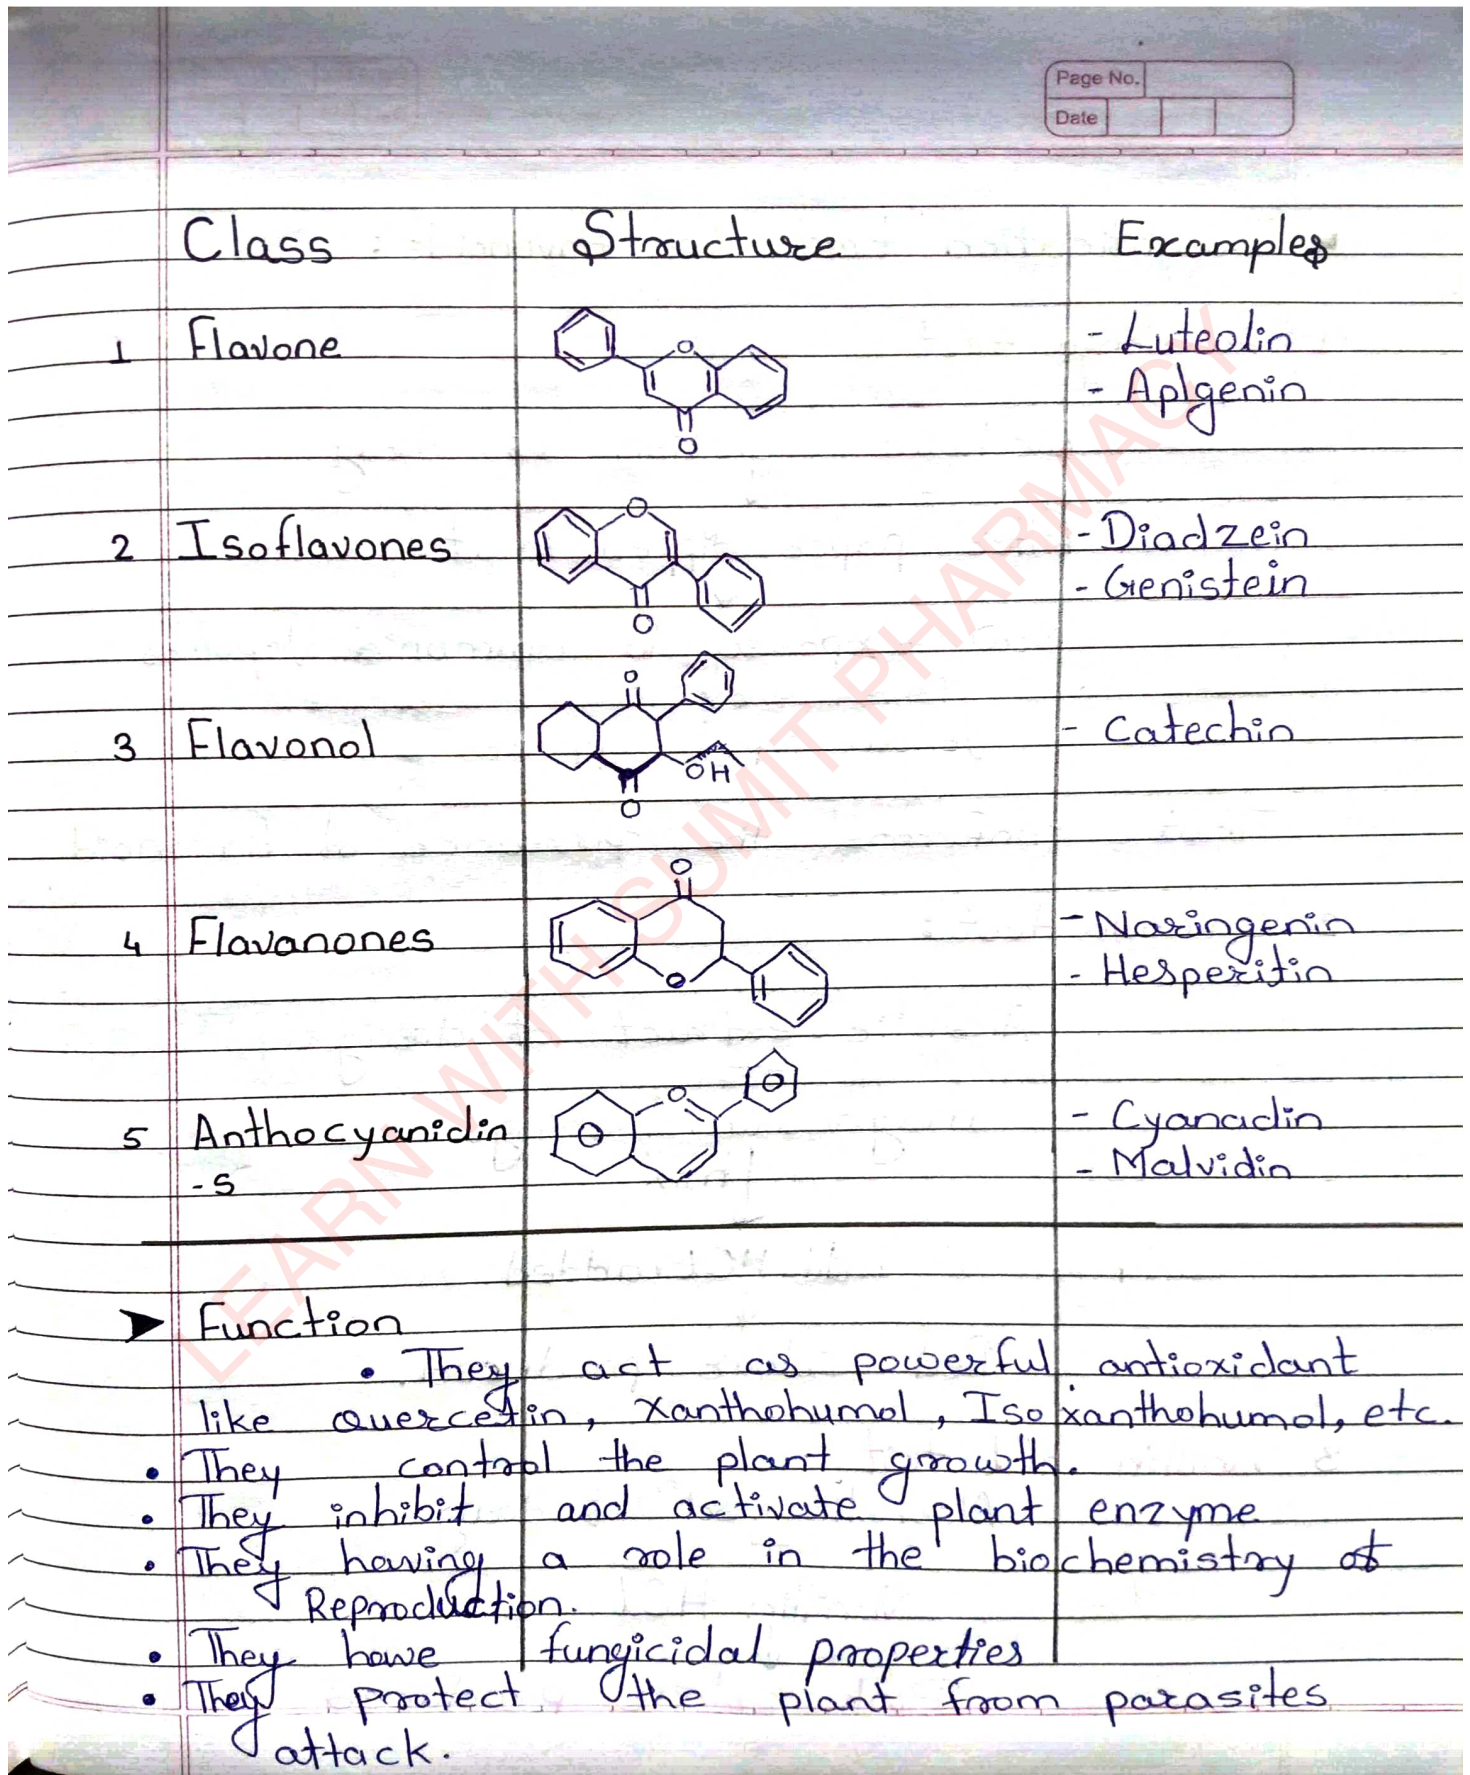 Page No.
Date
Class Structure Examples
1 Flavone - Luteolin
- ApIgenin
O
O
2 Isoflavones - Diadzein
- Genistein
O
O
3 Flavonol - Catechin
O
OH
O
4 Flavanones - Naringenin
- Hesperitin
O
O
5 Anthocyanidin - Cyanadin
-s - Malvidin
O
➤ Function
• They act as powerful antioxidant
like Quercetin, Xanthohumol, Iso xanthohumol, etc.
• They control the plant growth.
• They inhibit and activate plant enzyme
• They having a role in the biochemistry of
Reproduction.
• They have fungicidal properties
• They protect the plant from parasites
attack.
LEARN WITH SUMIT PHARMACY